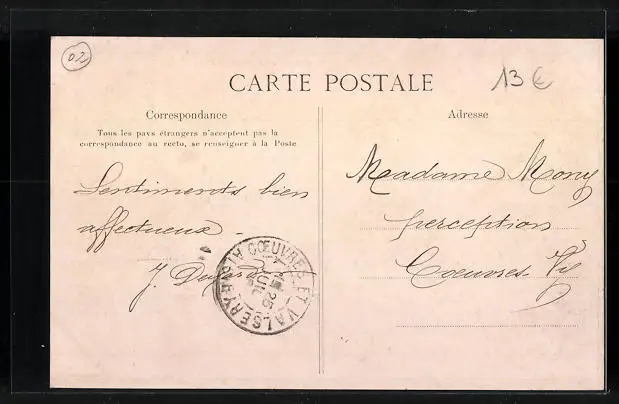 02
CARTE POSTALE
13 €
Correspondance
Tous les pays étrangers n'acceptent pas la
correspondance au recto, se renseigner à la Poste
Sentiments bien
affectueux -
J.
Adresse
Madame Mony
perception
Coeuvres
CŒUVRES-ET-VALSERY
25